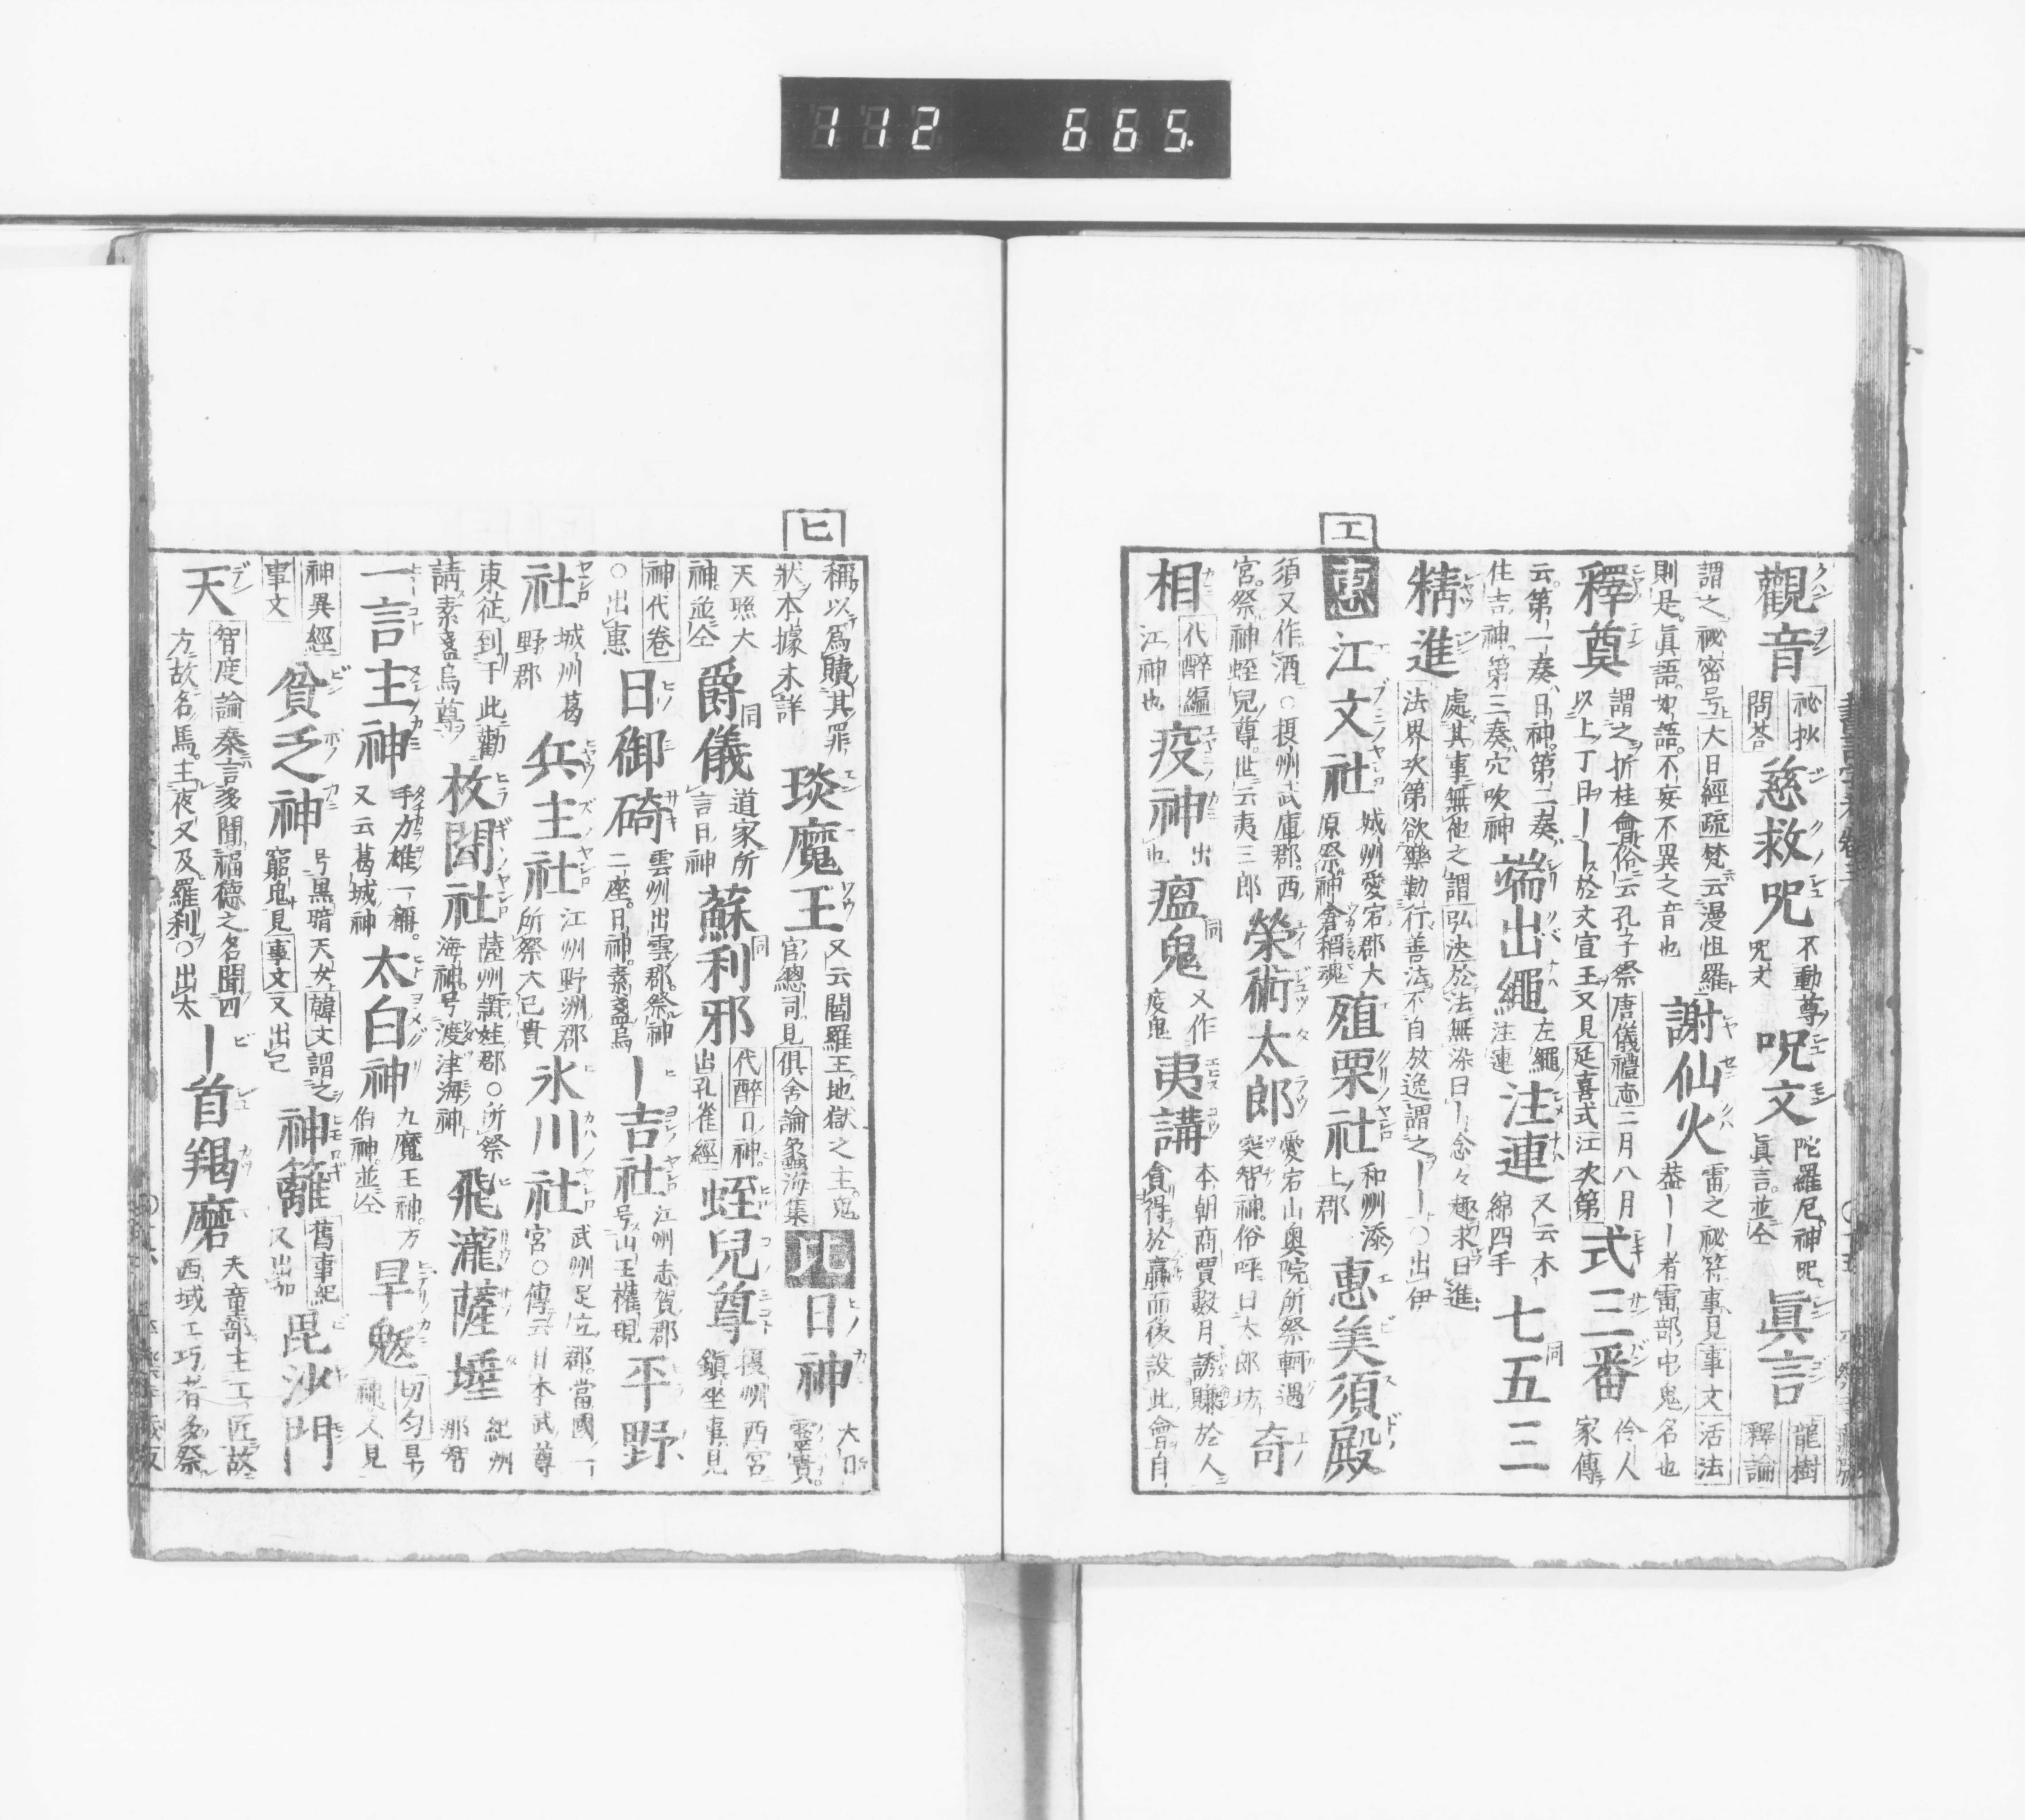 112 665.
エ
觀音 祕抄問荅 慈救咒 不動尊咒文 呪文 陀羅尼神呪眞言並仝 眞言 龍樹釋論
謂之祕密号大日經疏梵云漫怛羅則是眞語如語不妄不異之音也 謝仙火 雷之祕符事見事文活法蓋――者雷部中鬼名也
釋奠 謂之折桂會俗云孔子祭唐儀禮志二月八月以上丁日――於文宣王又見延喜式江次第 式三番 伶人家傳
云第一奏日神第二奏住吉神第三奏穴吹神 端出繩 左繩注連 注連 又云木綿四手 七五三 同
精進 處其事無他之謂弘决於法無染曰―念々趣求曰進法界次第欲樂勤行善法不自放逸謂之――○出伊
惠 江文社 城州愛宕郡大原祭神倉稻魂 殖栗社 和州添上郡 惠美須殿
須又作酒○摂州武庫郡西宮祭神蛭兒尊世云夷三郎 榮術太郎 愛宕山奥院所祭軻遇突智神俗呼曰太郎坊 奇
相 代醉編江神也 疫神 出 也 瘟鬼 同 又作疫鬼 夷講 本朝商賈數月誘賺於人貪得於贏而後設此會自
ヒ
稱以爲贖其罪狀本據未詳 琰魔王 又云閻羅王地獄之主鬼官總司見俱舍論螽海集 比 日神 大日靈貴
天照大神並仝 爵儀 同 道家所言日神 蘇利邪 同 代醉日神出孔雀經 蛭兒尊 摂州西宮鎮坐事見
神代卷○出惠 日御碕 雲州出雲郡祭神二座日神素盞烏 ―吉社 江州志賀郡号山王權現 平野
社 城州葛野郡 兵主社 江州野洲郡所祭大己貴 氷川社 武州足立郡當國一宮○傳云日本武尊
東征到于此勸請素盞烏尊 枚聞社 薩州頴娃郡○所祭海神号渡津海神 飛瀧薩埵 紀州那智
一言主神 手力雄一稱又云葛城神 太白神 九魔王神方伯神並仝 旱魃 切匀旱神人見
神異經事文 貧乏神 号黒暗天女韓文謂之窮鬼見事文又出己 神籬 舊事紀又出加 毘沙門
天 智度論秦言多聞福德之名聞四方故名焉主夜叉及羅刹○出太 ―首羯磨 天童部主工匠故西域工巧者多祭